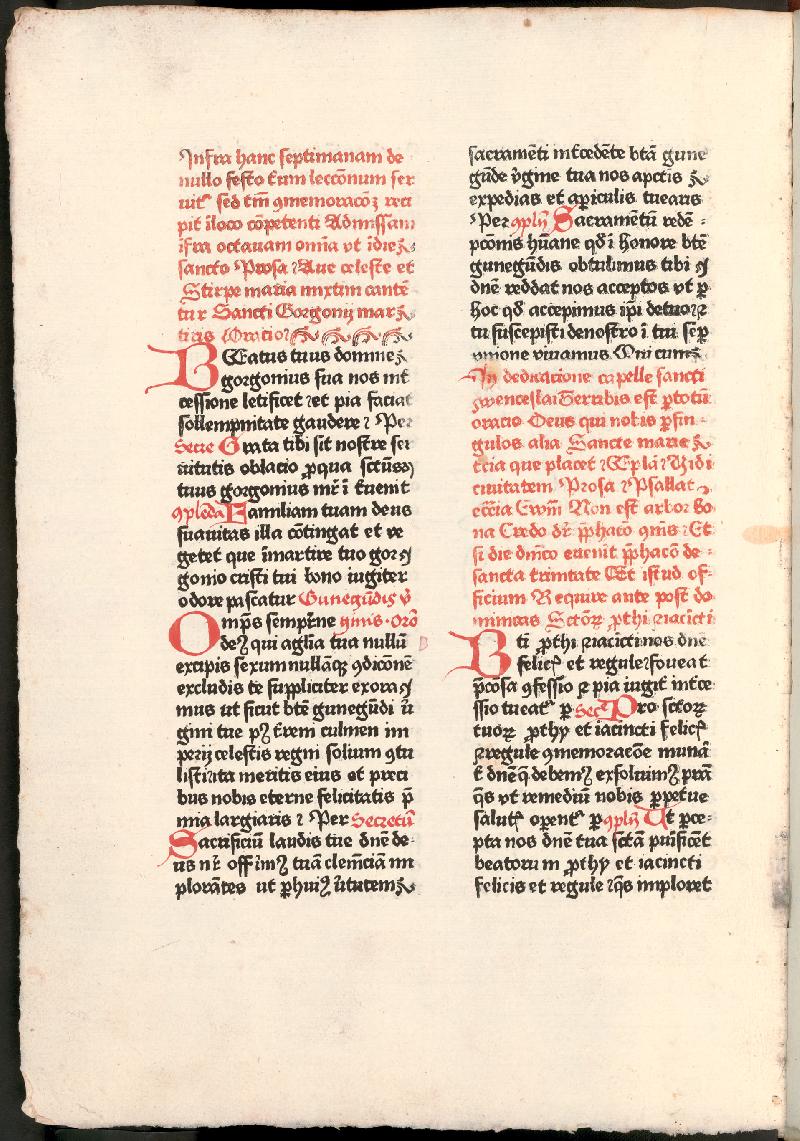 Infra hanc septimanam de
nullo festo trium lecconum ser
uit᷑ sed tm̄ ꝯmemoracoꝫ reci
pit ī loco cōpetenti Ad missam
īfra octauam om̄ia vt ī die
sancto Prosa ⁊ Aue celeste et
Stirpe maria mixtim cantē
tur Sancti Gorgonij mar
tiris Oracio
BEatus tuus domine
gorgonius sua nos int̄
cessione letificet ⁊ et pia faciat
sollempnitate gaudere ⁊ Per
Secre Grata tibi sit nostre ser
uitutis oblacio ꝓ qua sctūs
tuus gorgonius mr̄ ī tuenit
ꝯplēda Familiam tuam deus
suauitas illa cōtingat et ve
getet que ī martire tuo gor
gonio cristi tui bono iugiter
odore pascatur Gunegūdis v̄
Omp̄s sempr̄ne ginis. orō
deꝫ qui agl̄ia tua nullū
excipis sexum nullāqꝫ ꝯdiconē
excludis te suppliciter exora
mus ut sicut btē gunegūdi v̄
gini tue pꝫ t̄rem culmen im
perij celestis regni solium ꝯtu
listi ita meritis eius et preci
bus nobis eterne felicitatis p̄
mia largiaris ⁊ Per Secretū
Sacrificiū laudis tue dn̄e de
us nr̄ offim̄ꝫ tuā clemēciā im
plorātes ut ꝑ huiꝫ v̄tutem
sacramēti int̄cedēte btā gune
gūde v̄gine tua nos a pctis
expedias et a ꝑiculis tuearis
Per ꝯplꝫ Sacramētū redē
pcōnis hūane qd̄ ī honore btē
gunegūdis obtulimus tibi
dn̄e reddat nos acceptos vt ꝑ
hoc qd̄ accepimus ip̄i de tuo ⁊
tu suscepisti de nostro ī tui sēꝑ
vnione viuamus Qui cum
In dedicacione capelle sancti
wenceslai Terribis est ꝑ totū
oracio Deus qui nobis ꝑ sin
gulos alia Sancte marie
t̄cia que placet ⁊ Epl̄a ⁊ Vidi
ciuitatem Prosa ⁊ Psallat
ecc̄ia Ewm̄ Non est arbor bo
na Credo dr̄ p̄phacō ꝯm̄is ⁊ Et
si die dm̄co euenit p̄phacō de
sancta trinitate Et istud of
ficium Require ante post do
minicas Sctōꝝ ꝓthi ⁊ iacicti
Bti ꝓthi ⁊ iacicti nos dn̄e
felic᷑ et regule ⁊ foueat
p̄cosa ꝯfessio ⁊ pia iugit᷑ int̄ce
ssio tueat᷑ ꝑ Secr̄ Pro sctōꝝ
tuoꝝ ꝓthy et iacincti felic᷑
⁊ regule ꝯmemoracōe munā
t᷑ dn̄e qꝫ debemꝫ exsoluimꝫ prā
q̄s vt remediū nobis ꝑpetue
salut᷑ opent᷑ ꝑ ꝯplꝫ Vt ꝑce
pta nos dn̄e tua sctā puificēt
beatorum ꝓthy et iacincti
felicis et regule ⁊ q̄s imploret